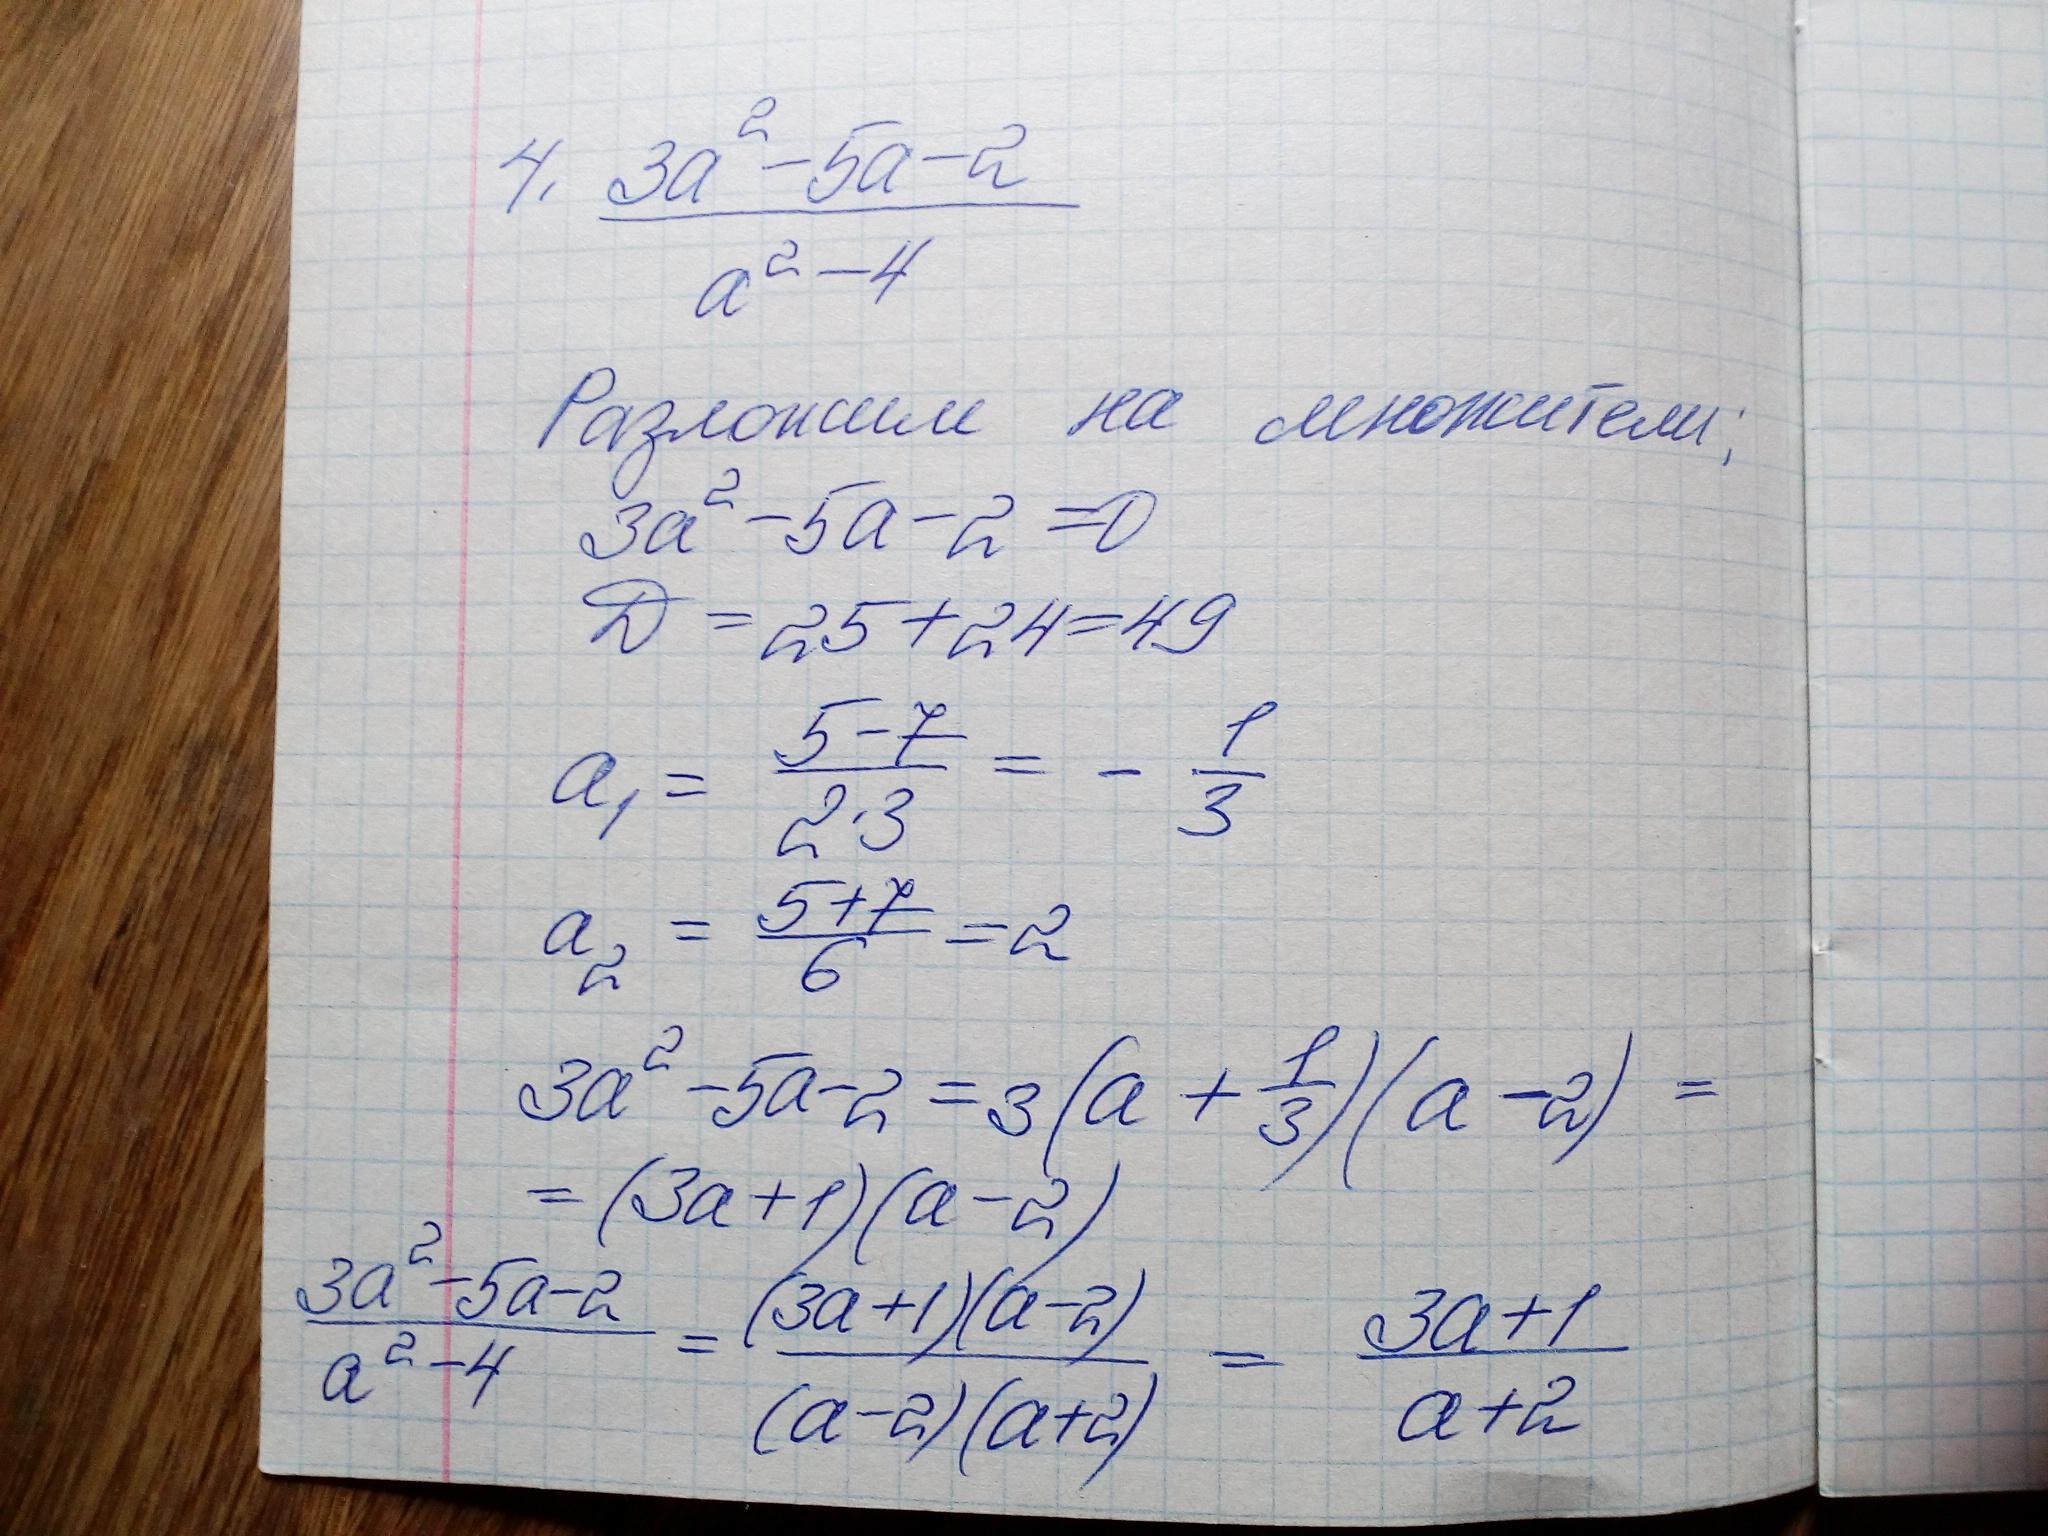 4. (3a² - 5a - 2)/(a² - 4)
Разложим на множители;
3a² - 5a - 2 = 0
D = 25 + 24 = 49
a₁ = (5 - 7)/(2·3) = - 1/3
a₂ = (5 + 7)/6 = 2
3a² - 5a - 2 = 3(a + 1/3)(a - 2) =
= (3a + 1)(a - 2)
(3a² - 5a - 2)/(a² - 4) = ((3a + 1)(a - 2))/((a - 2)(a + 2)) = (3a + 1)/(a + 2)